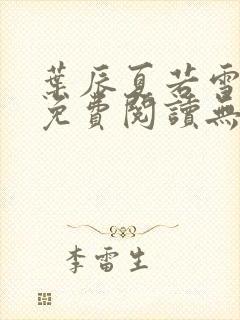 葉辰夏若雪
免費閱讀無
李雷生